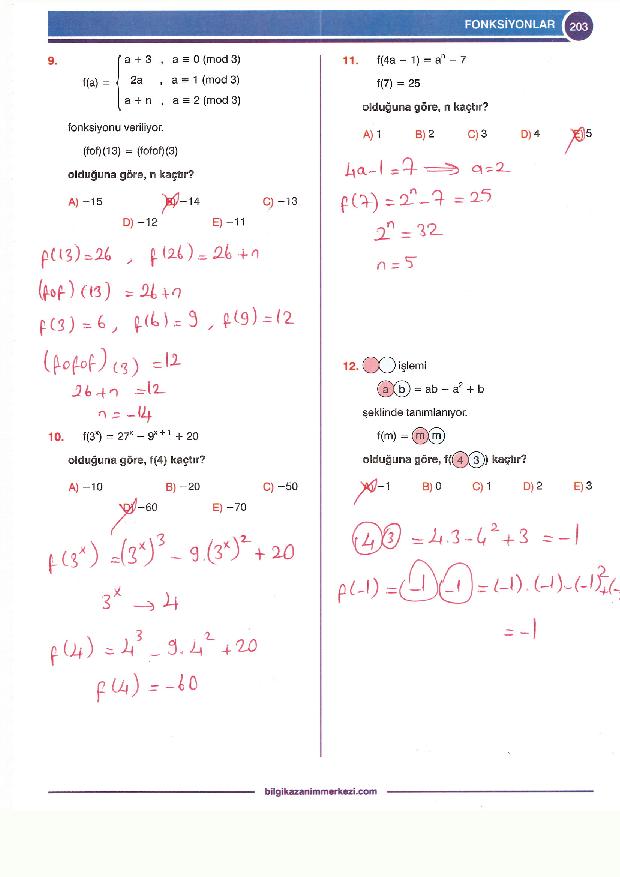 FONKSİYONLAR 203
9. f(a) = { a + 3 , a ≡ 0 (mod 3)
2a , a ≡ 1 (mod 3)
a + n , a ≡ 2 (mod 3)
fonksiyonu veriliyor.
(fof)(13) = (fofof)(3)
olduğuna göre, n kaçtır?
A) −15 B) −14 C) −13
D) −12 E) −11
f(13) = 26 , f(26) = 26 + n
(fof)(13) = 26 + n
f(3) = 6 , f(6) = 9 , f(9) = 12
(fofof)(3) = 12
26 + n = 12
n = −14
10. f(3ˣ) = 27ˣ − 9ˣ⁺¹ + 20
olduğuna göre, f(4) kaçtır?
A) −10 B) −20 C) −50
D) −60 E) −70
f(3ˣ) = (3ˣ)³ − 9.(3ˣ)² + 20
3ˣ → 4
f(4) = 4³ − 9.4² + 20
f(4) = −60
11. f(4a − 1) = aⁿ − 7
f(7) = 25
olduğuna göre, n kaçtır?
A) 1 B) 2 C) 3 D) 4 E) 5
4a − 1 = 7 ⟹ a = 2
f(7) = 2ⁿ − 7 = 25
2ⁿ = 32
n = 5
12. işlemi
a b = ab − a² + b
şeklinde tanımlanıyor.
f(m) = m m
olduğuna göre, f( 4 3 ) kaçtır?
A) −1 B) 0 C) 1 D) 2 E) 3
4 3 = 4.3 − 4² + 3 = −1
f(−1) = −1 −1 = (−1).(−1) − (−1)² + (−
= −1
bilgikazanimmerkezi.com